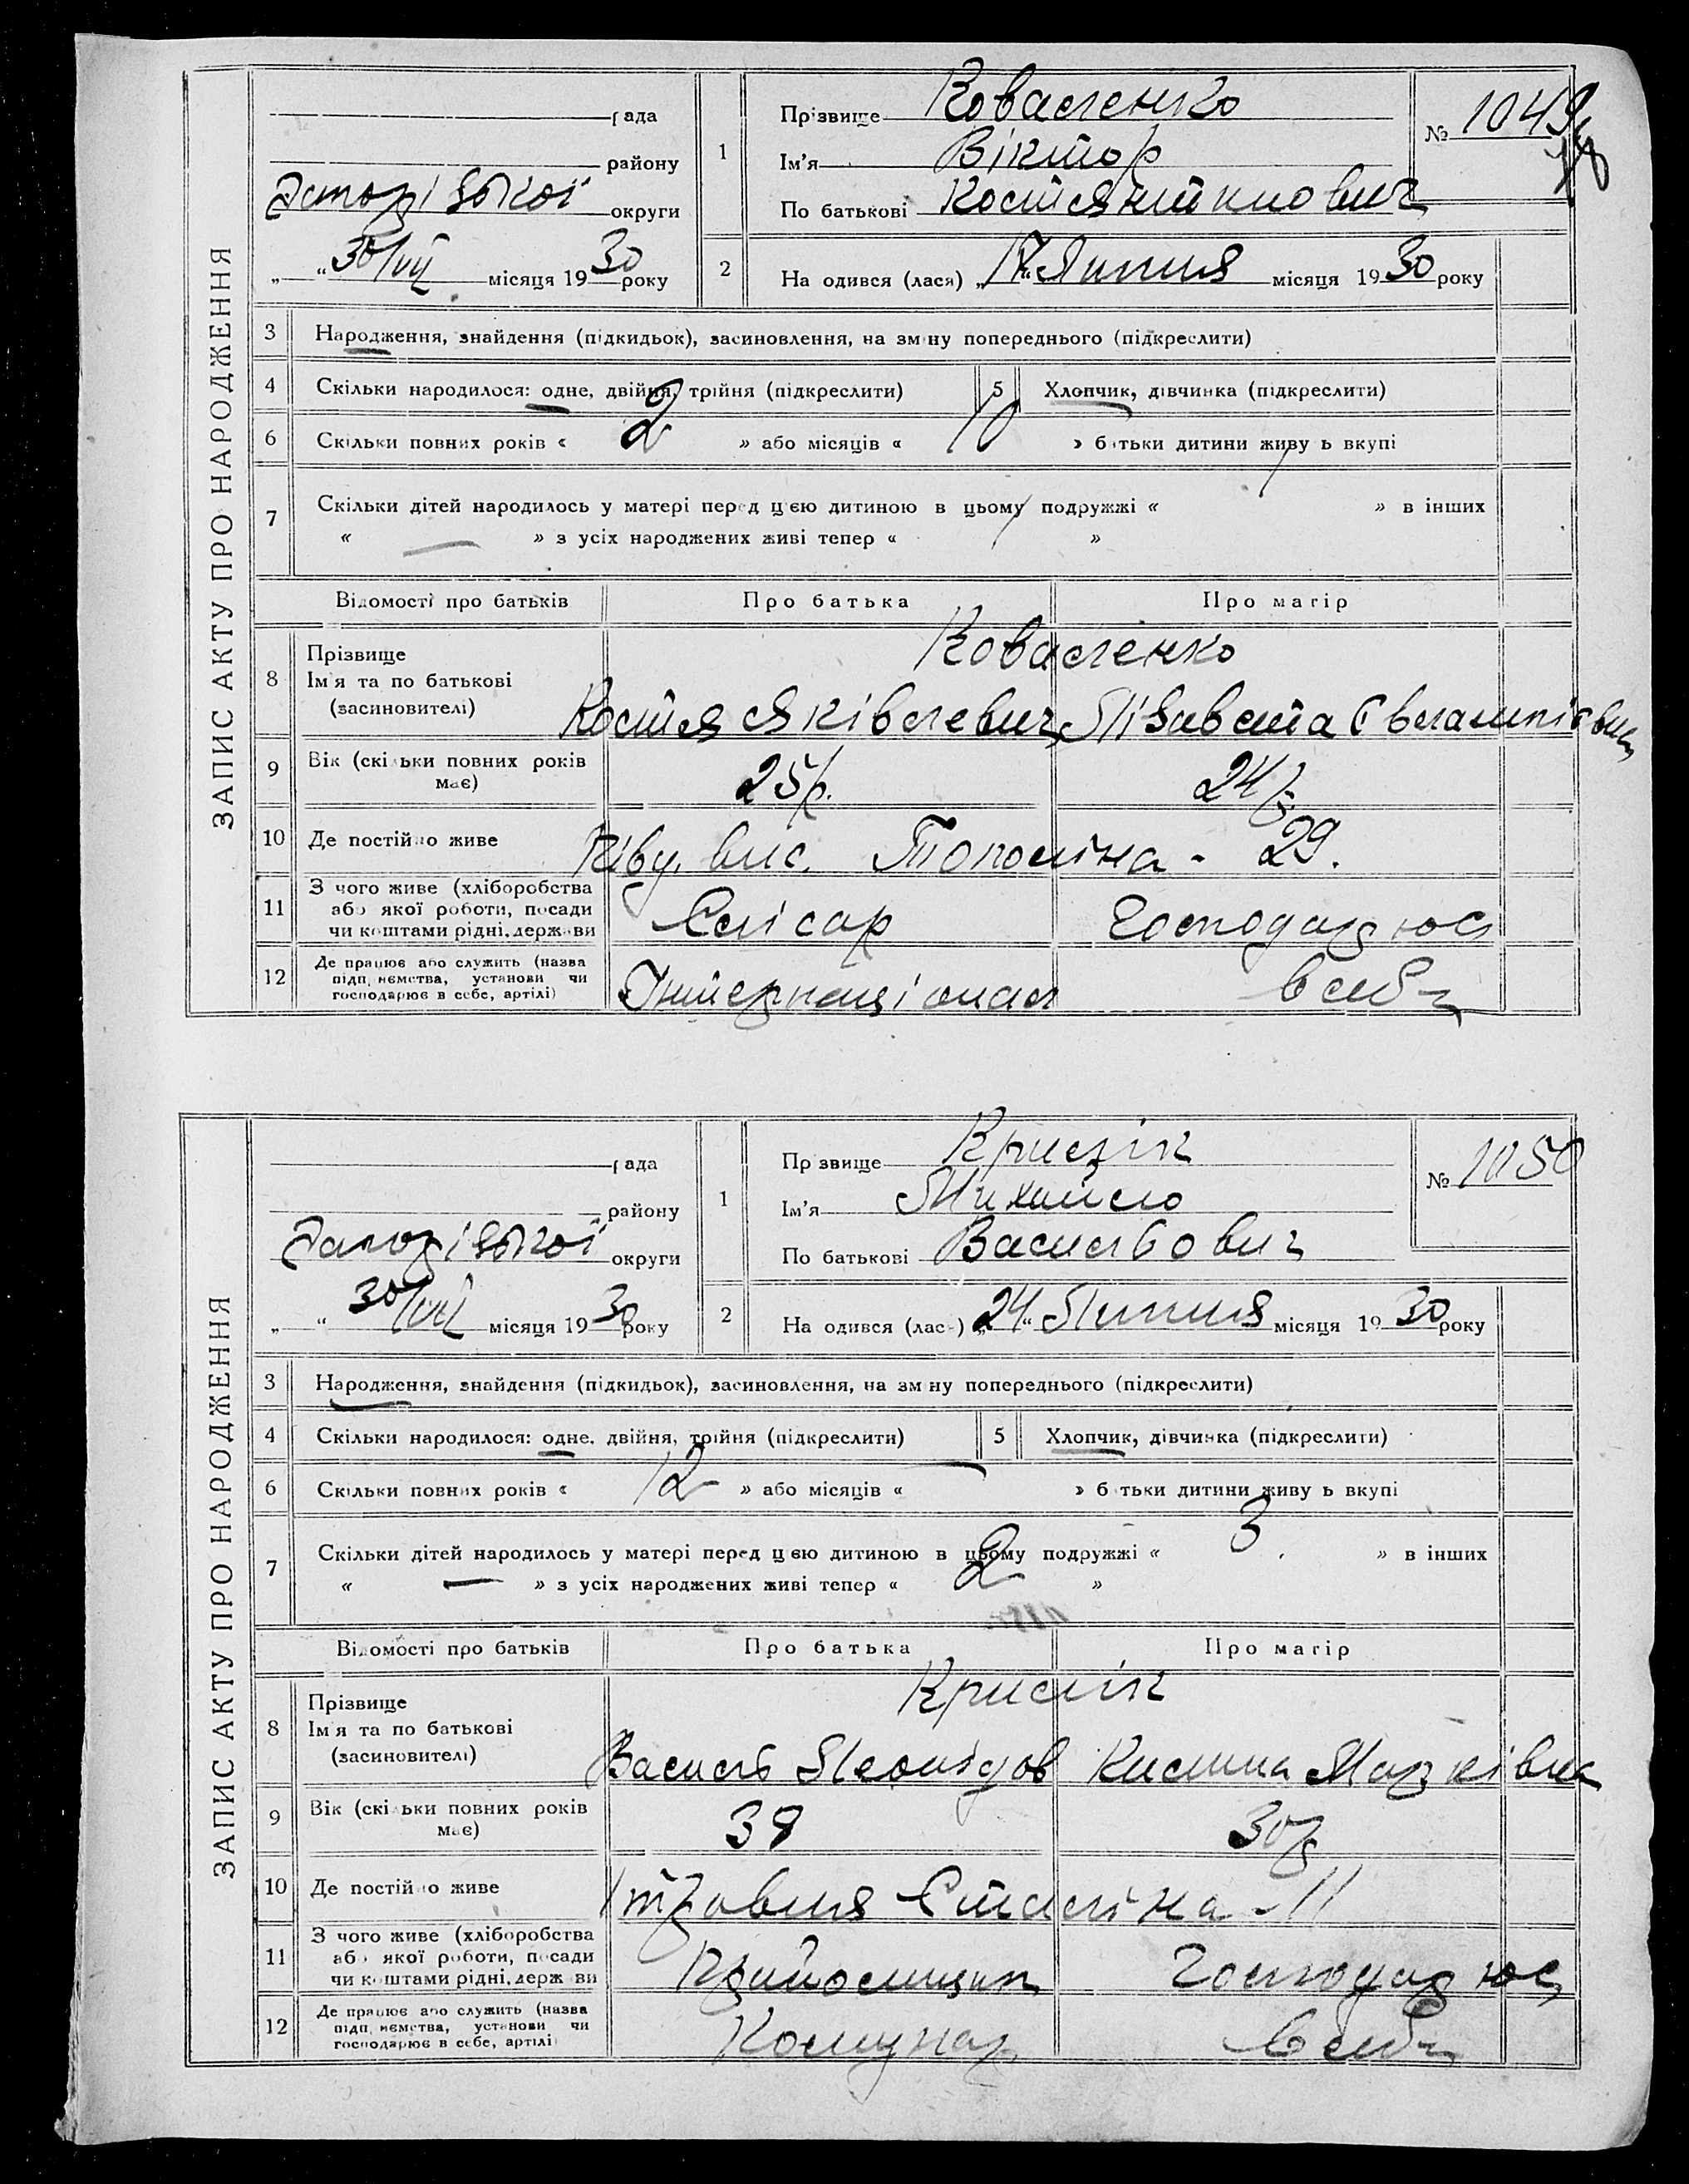 ЗАПИС АКТУ ПРО НАРОДЖЕННЯ
рада
району
округи
„ “ 30/VII місяця 1930 року
1
Прізвище Коваленко
Ім'я Віктор
По батькові
№ 1049
2
На одився (лася) „17“ Липня місяця 1930 року
3 Народження, знайдення (підкидьок), засиновлення, на зміну попереднього (підкреслити)
4 Скільки народилося: одне, двійня, трійня (підкреслити)
5 Хлопчик, дівчинка (підкреслити)
6 Скільки повних років « 2 » або місяців « 10 » батьки дитини живуть вкупі
7 Скільки дітей народилось у матері перед цією дитиною в цьому подружжі « » в інших
« — » з усіх народжених живі тепер « »
Відомості про батьків Про батька Про матір
8 Прізвище
Ім'я та по батькові
(засиновителі)
Коваленко
Костя Яківлевич Лізавета
9 Вік (скільки повних років має) 25 р. 24 р.
10 Де постійно живе вис. Тополіна - 29.
11 З чого живе (хліборобства
або якої роботи, посади
чи коштами рідні, держави
Слісар Господарює
12 Де працює або служить (назва
підприємства, установи чи
господарює в себе, артілі)
Інтернаціонал в себе
ЗАПИС АКТУ ПРО НАРОДЖЕННЯ
рада
району
Запорізької округи
„ “ 30/VII місяця 1930 року
1
Прізвище
Ім'я Михайло
По батькові Васильович
№ 1050
2
На одився (лас-) „24“ Липня місяця 1930 року
3 Народження, знайдення (підкидьок), засиновлення, на зміну попереднього (підкреслити)
4 Скільки народилося: одне, двійня, трійня (підкреслити)
5 Хлопчик, дівчинка (підкреслити)
6 Скільки повних років « 12 » або місяців « — » батьки дитини живуть вкупі
7 Скільки дітей народилось у матері перед цією дитиною в цьому подружжі « 3 » в інших
« — » з усіх народжених живі тепер « 2 »
Відомості про батьків Про батька Про матір
8 Прізвище
Ім'я та по батькові
(засиновителі)
Василь Леонідов Марківна
9 Вік (скільки повних років має) 38 30 р
10 Де постійно живе 1 травня Сталіна - 11
11 З чого живе (хліборобства
або якої роботи, посади
чи коштами рідні, держави
Господарює
12 Де працює або служить (назва
підприємства, установи чи
господарює в себе, артілі
Комунар в себе